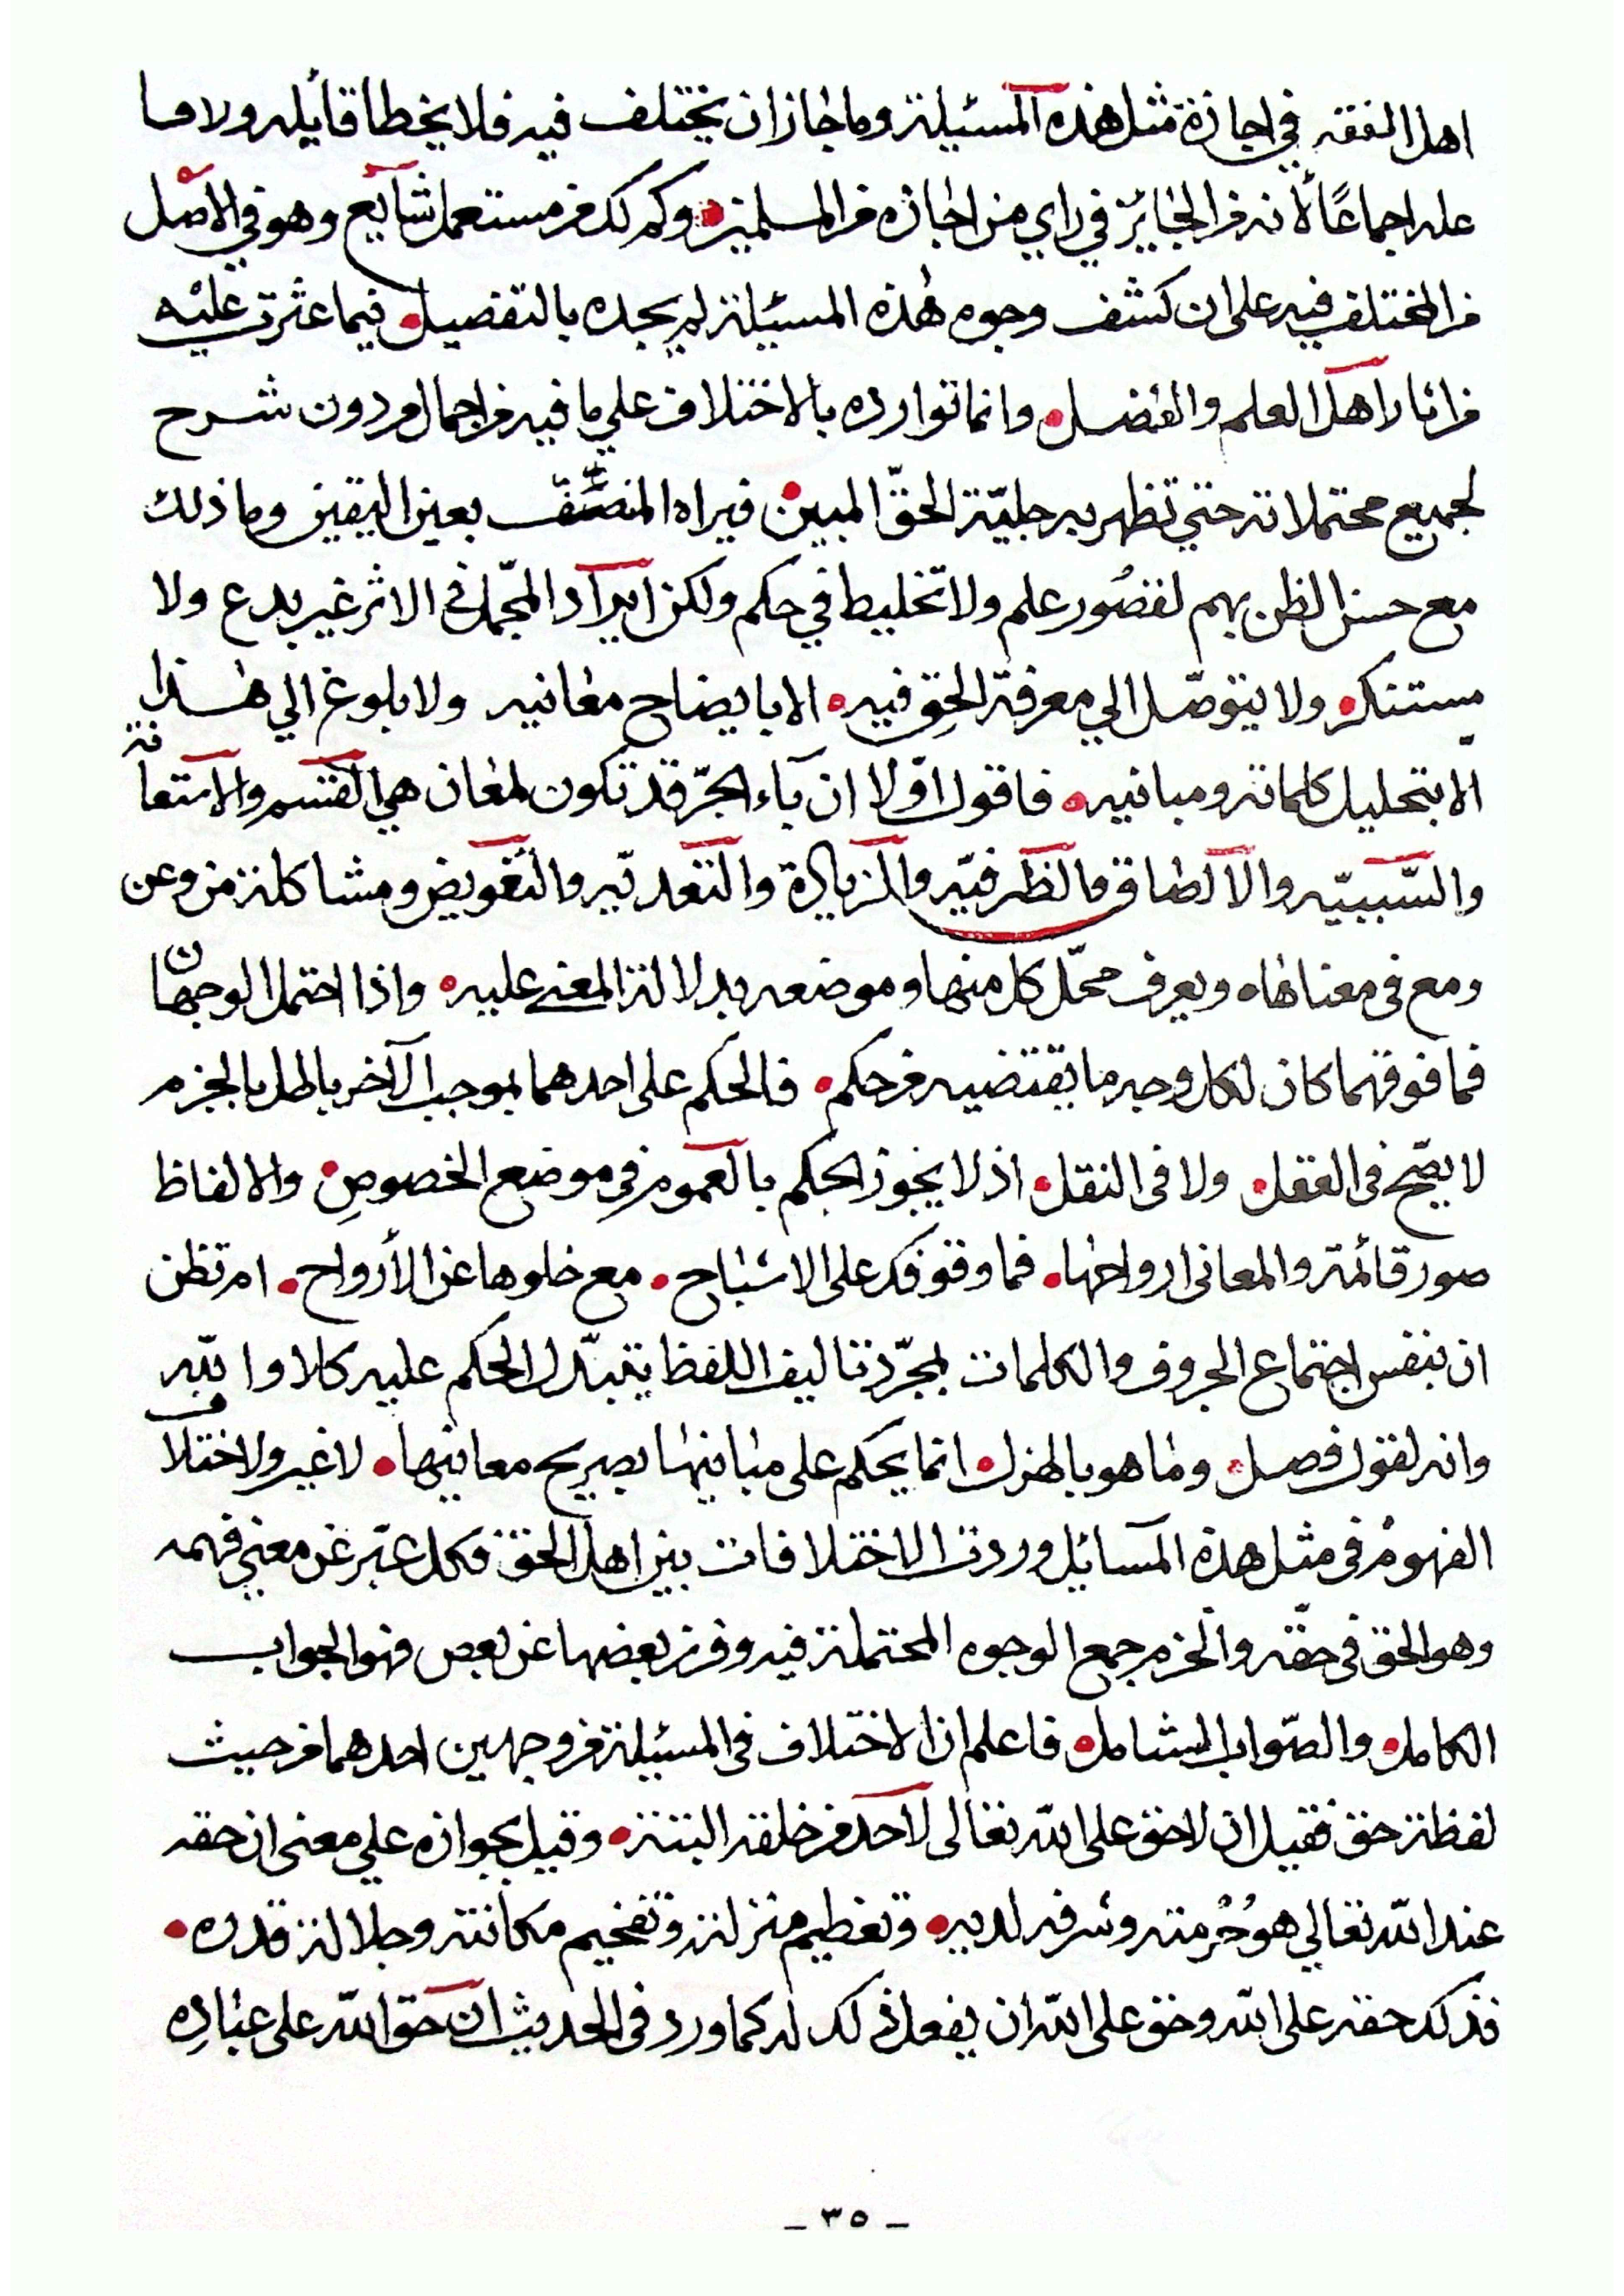 اهل الفقه في اجازة مثل هذه المسئيلة وما جاز ان يختلف فيه فلا يخطا قايله ولا فا
عله اجماعًا لأنه من الجايز في راي من اجازه من المسلمين وكم لك من مستعمل شايع وهو في الاصل
من المختلف فيه على ان كشف وجوه هذه المسيلة لم يجده بالتفصيل فيما عثرت عليه
من اثار اهل العلم والفضل وانما توارده بالاختلاف علي ما فيه من اجمال من دون شرح
لجميع محتملاته حتي تظهر به جليّة الحقّ المبين فيراه المنصف بعين اليقين وما ذلك
مع حسن الظن بهم لقصُور علم ولا تخليط في حكم ولكن ايراد المجّمل في الاثر غير بدع ولا
مستنكر ولا يتوصّل الي معرفة الحق فيه الا بايضاح معانيه ولا بلوغ الي هذا
الا بتحليل كلماته ومبانيه فاقول اوّلا ان باء الجرّ قد تكون لمعان هي القسم والاستعا نة
والسّببيّه والالصاق والظرفيّه والزيادة والتعديّه والتعويض ومشاكلة من وعن
ومع في معناها ويعرف محمّل كل منها وموضعه بدلالة المعنى عليه واذا احتمل الوجهان
فما فوقهما كان لكل وجه ما يقتضيه من حكم فالحكم على احدهما بموجب الآخر باطل بالجزم
لا يصّح في العقل ولا في النقل اذ لا يجوز الحكم بالعموم في موضع الخصوصِ والالفاظ
صور قائمة والمعاني ارواحها فما وقوفك على الاشباح مع خلوها عن الأرواح ام تظن
ان بنفس اجتماع الحروف والكلمات بمجّرد تاليف اللفظ يتبدّل الحكم عليه كلا والله
وانه لقول فصل وما هو بالهزل انما يحكم على مبانيها بصريح معانيها لا غير ولاختلاف
الفهوم في مثل هذه المسائل وردت الاختلافات بين اهل الحق فكل عبّر عن معني فهمه
وهو الحق في حقّه والحزم جمع الوجوه المحتملة فيه وفرز بعضها عن بعض فهو الجواب
الكامل والصّواب الشامل فاعلم ان الاختلاف في المسئيلة من وجهين احدهما من حيث
لفظة حق فقيل ان لا حق على الله تعالى لاحد من خلقه البتة وقيل بجوازه علي معنى ان حقه
عند الله تعالي هو حُرْمته وشرفه لديه وتعظيم منزلته وتفخيم مكانته وجلالة قدره
فذلك حقه على الله وحق على الله ان يفعل ذلك له كما ورد في الحديث ان حق الله على عبادِه
- ٣٥ -